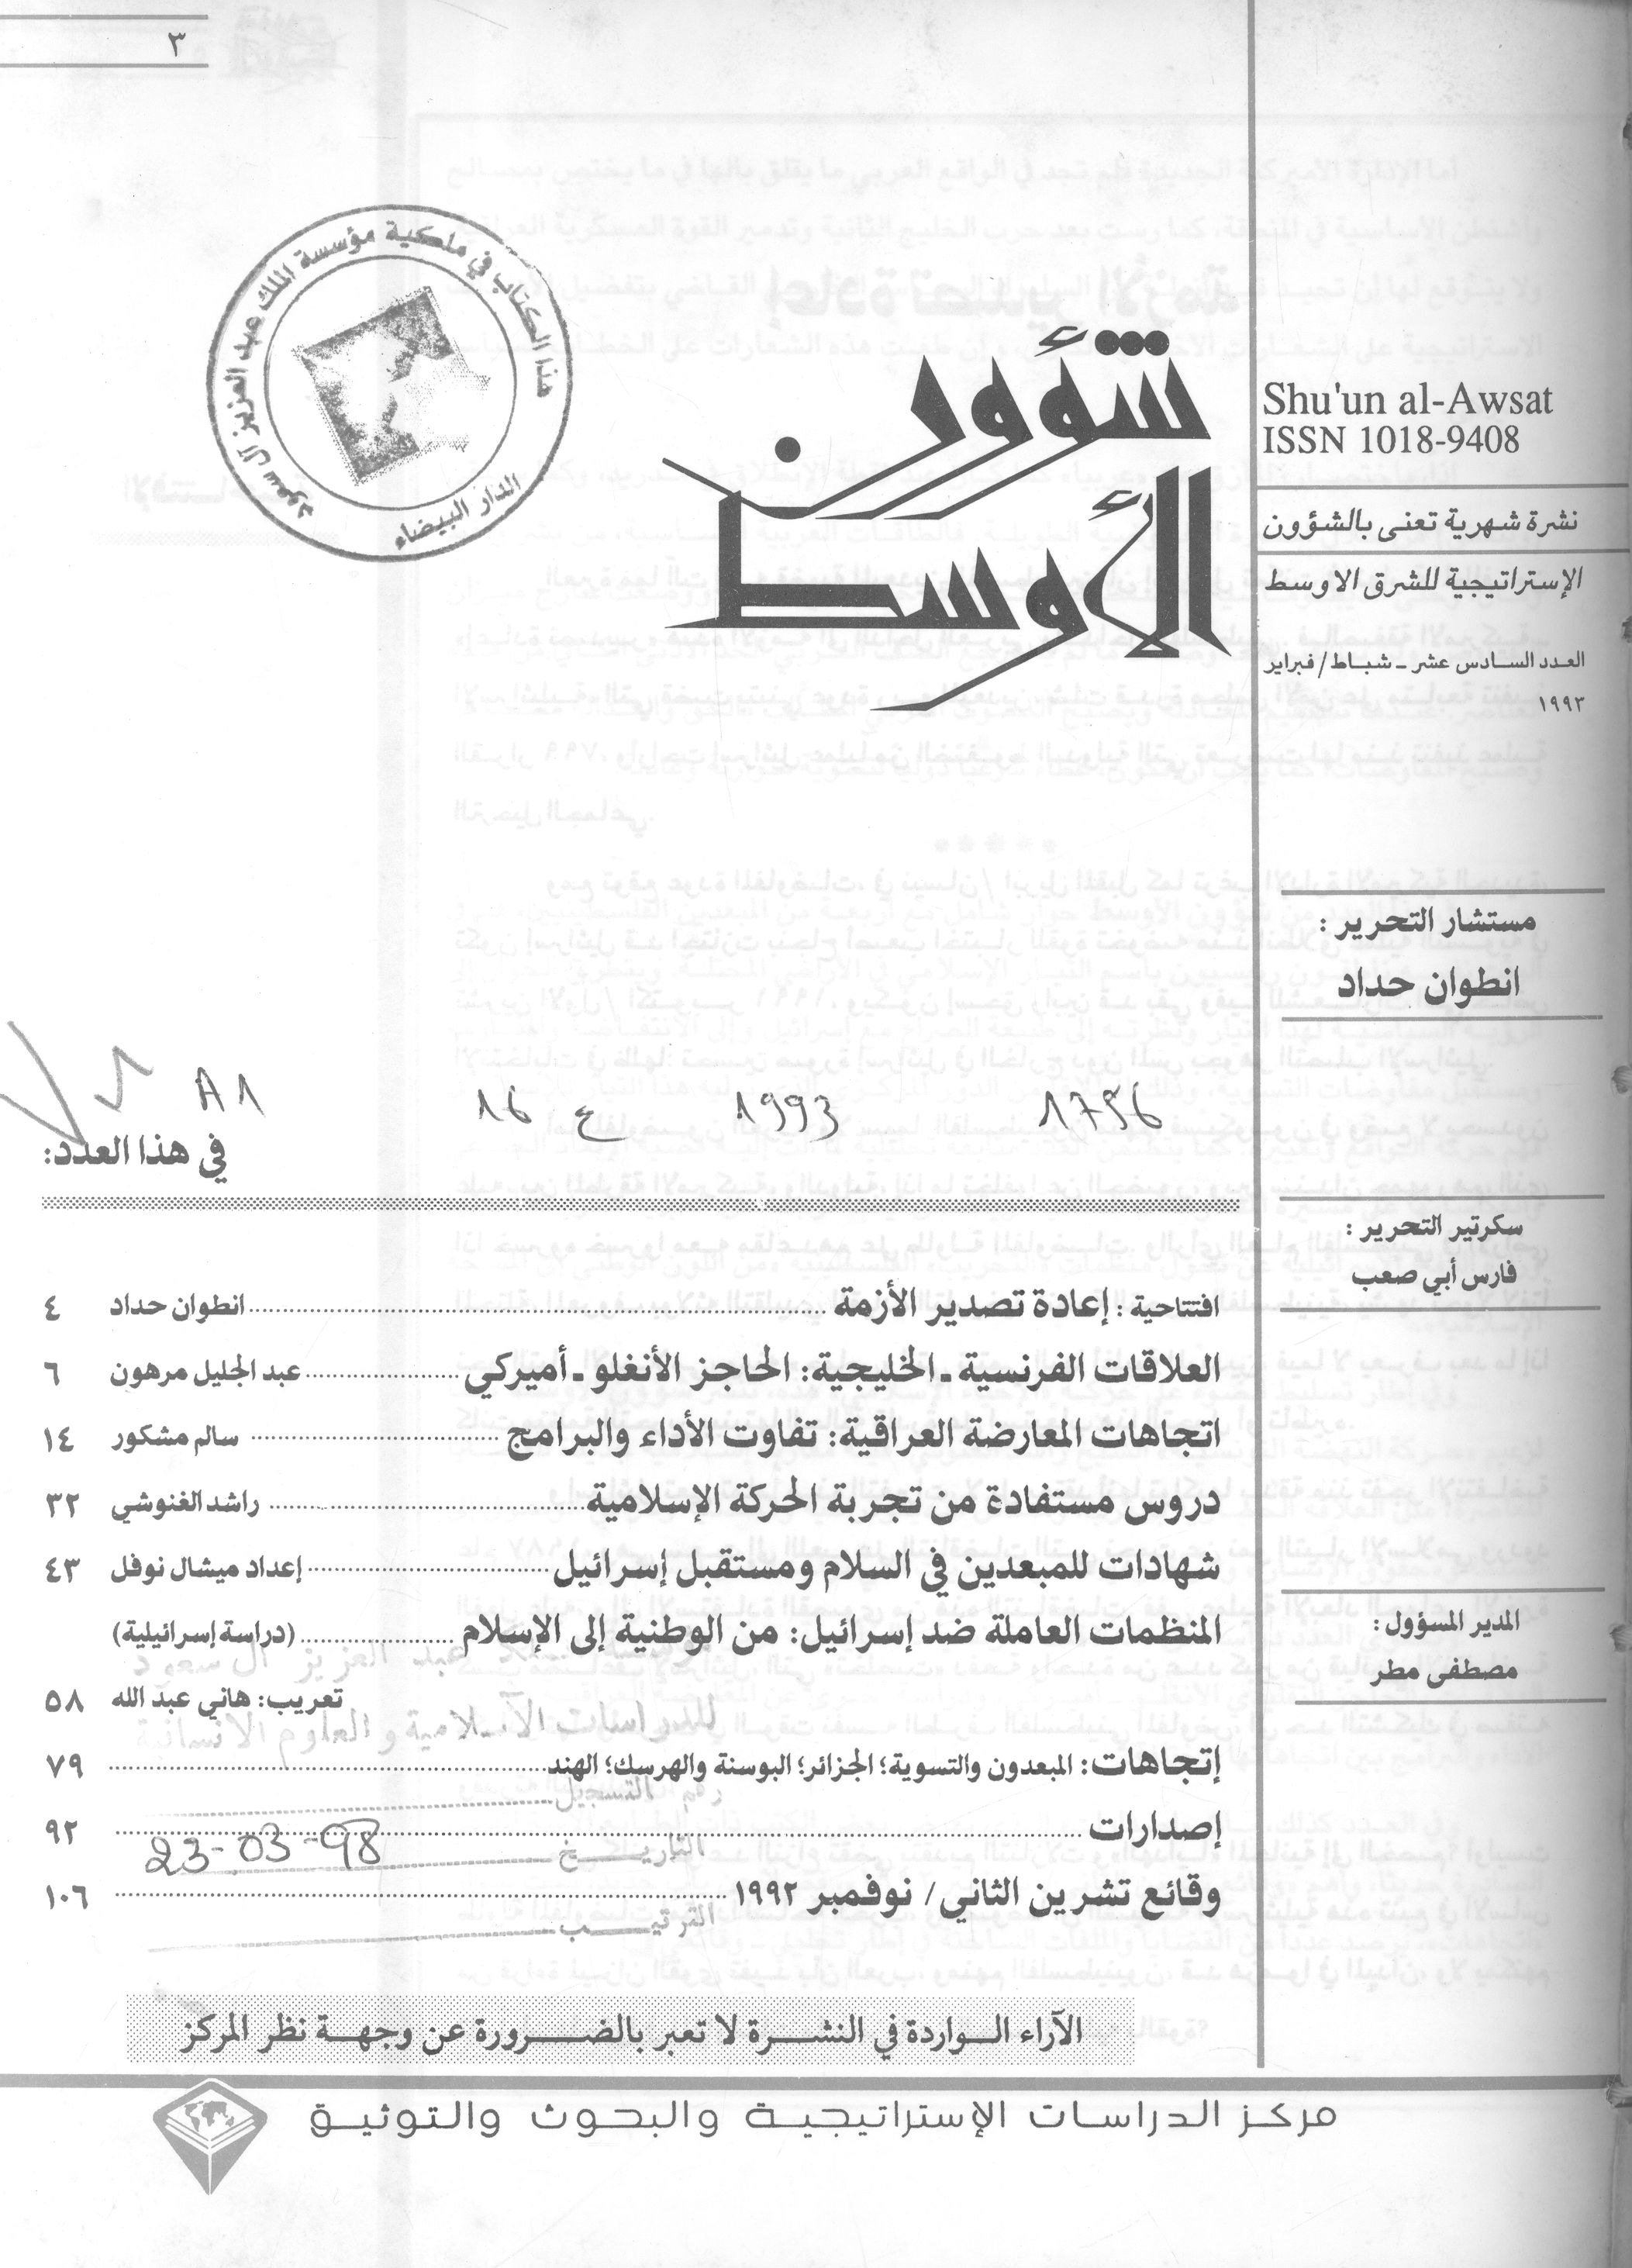 ٣
هذا الكتاب في ملكية مؤسسة الملك عبد العزيز آل سعود
الدار البيضاء
شؤون
الأوسط
Shu'un al-Awsat
ISSN 1018-9408
نشرة شهرية تعنى بالشؤون
الإستراتيجية للشرق الاوسط
العدد السادس عشر ـ شباط/فبراير
١٩٩٣
مستشار التحرير :
انطوان حداد
سكرتير التحرير :
فارس أبي صعب
المدير المسؤول :
مصطفى مطر
1756 1993 ع 16 A1
في هذا العدد:
افتتاحية : إعادة تصدير الأزمة انطوان حداد ٤
العلاقات الفرنسية ـ الخليجية: الحاجز الأنغلو ـ أميركي عبد الجليل مرهون ٦
اتجاهات المعارضة العراقية: تفاوت الأداء والبرامج سالم مشكور ١٤
دروس مستفادة من تجربة الحركة الإسلامية راشد الغنوشي ٣٢
شهادات للمبعدين في السلام ومستقبل إسرائيل إعداد ميشال نوفل ٤٣
المنظمات العاملة ضد إسرائيل: من الوطنية إلى الإسلام (دراسة إسرائيلية)
عبد العزيز آل سعود
تعريب: هاني عبد الله ٥٨
للدراسات الاسلامية والعلوم الانسانية
إتجاهات: المبعدون والتسوية؛ الجزائر؛ البوسنة والهرسك؛ الهند ٧٩
رقم التسجيل
إصدارات ٩٢
التاريخ 23-03-98
وقائع تشرين الثاني/ نوفمبر ١٩٩٢ ١٠٦
الترتيب
الآراء الواردة في النشرة لا تعبر بالضرورة عن وجهة نظر المركز
مركز الدراسات الإستراتيجية والبحوث والتوثيق